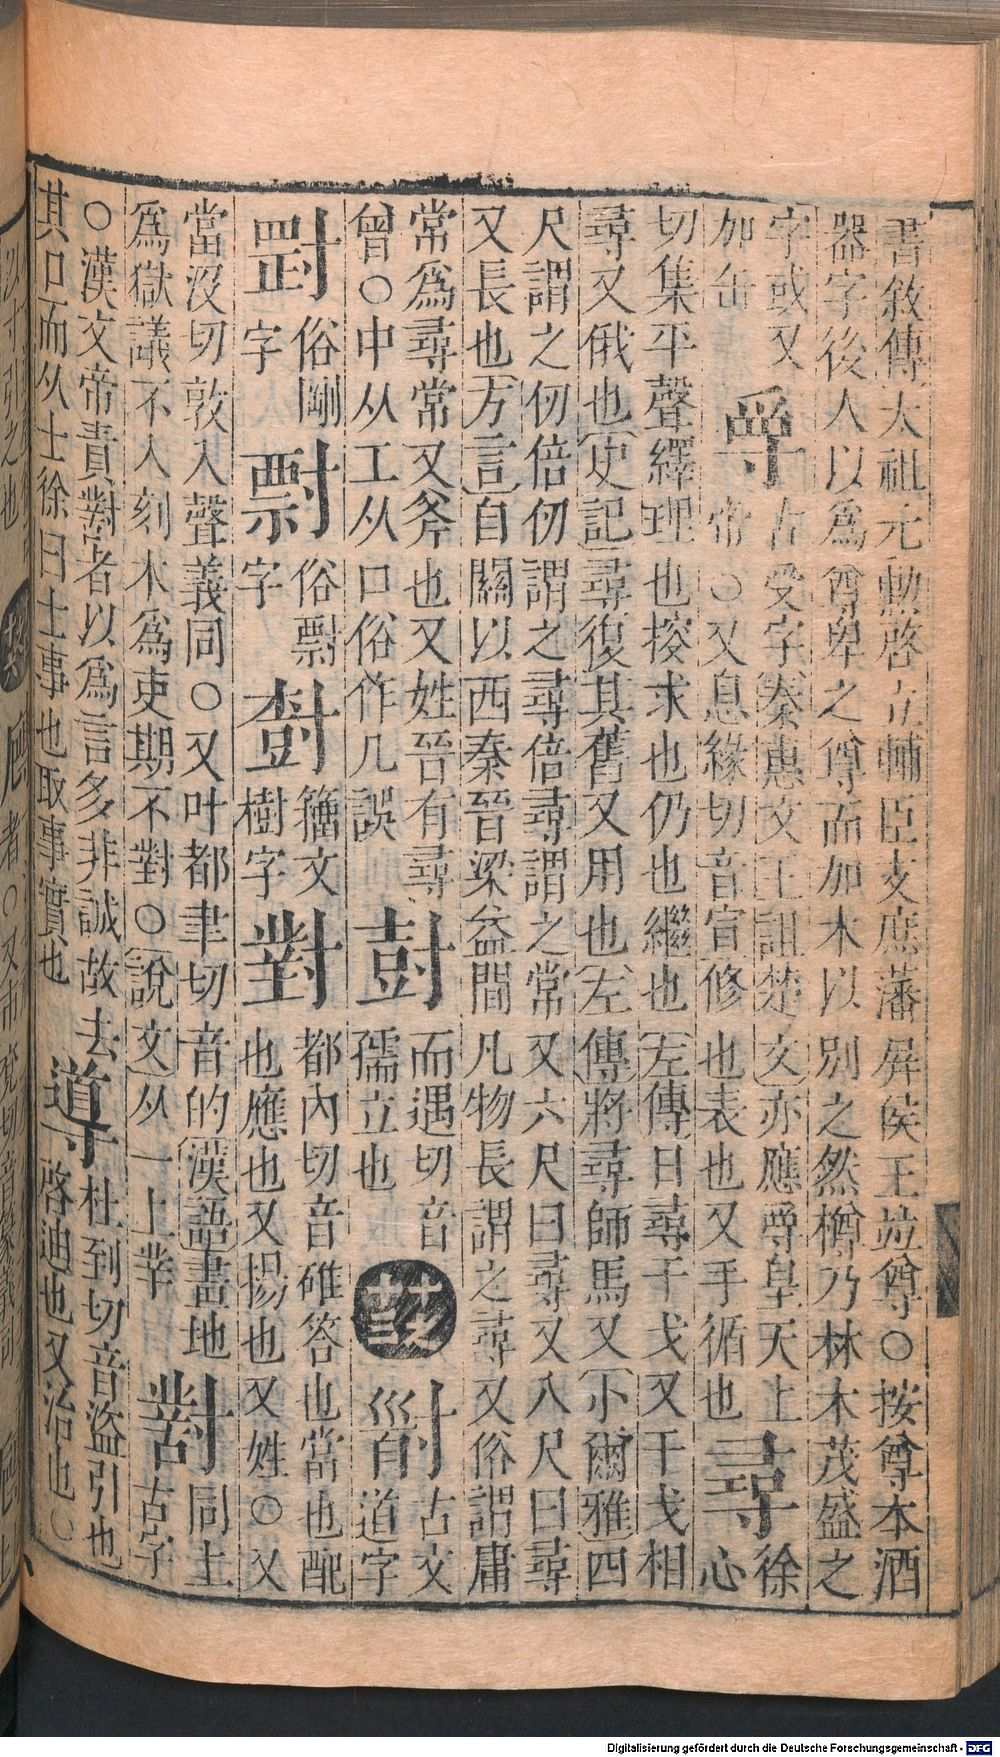 書敘傳太祖元勲啓立輔臣支庶藩屏侯王竝尊○按尊本酒
器字後人以為尊卑之尊而加木以別之然樽乃林木茂盛之
字或又
加缶
古受字秦惠文王詛楚文亦應皇天上
帝○又息緣切音宣修也表也又手循也
尋
徐
心
切集平聲繹理也按求也仍也繼也左傳日尋干戈又干戈相
尋又俄也史記尋復其舊又用也左傳將尋師馬又小爾雅四
尺謂之仞倍仞謂之尋倍尋謂之常又六尺曰尋又八尺曰尋
又長也方言自關以西秦晉梁益間凡物長謂之尋又俗謂庸
常為尋常又斧也又姓晉有尋
曾○中从工从口俗作几誤
尌
而遇切音
孺立也
古文
道字
俗剛
字
俗剽
字
籀文
樹字
對
都內切音碓答也當也配
也應也又揚也又姓○又
當沒切敦入聲義同○又叶都聿切音的漢語畫地
為獄議不入刻木為吏期不對○說文从一上丵
同上
古字
○漢文帝責對者以為言多非誠故去
其口而从士徐曰士事也取事實也
導
杜到切音盜引也
啓迪也又治也○
Digitalisierung gefördert durch die Deutsche Forschungsgemeinschaft - DFG